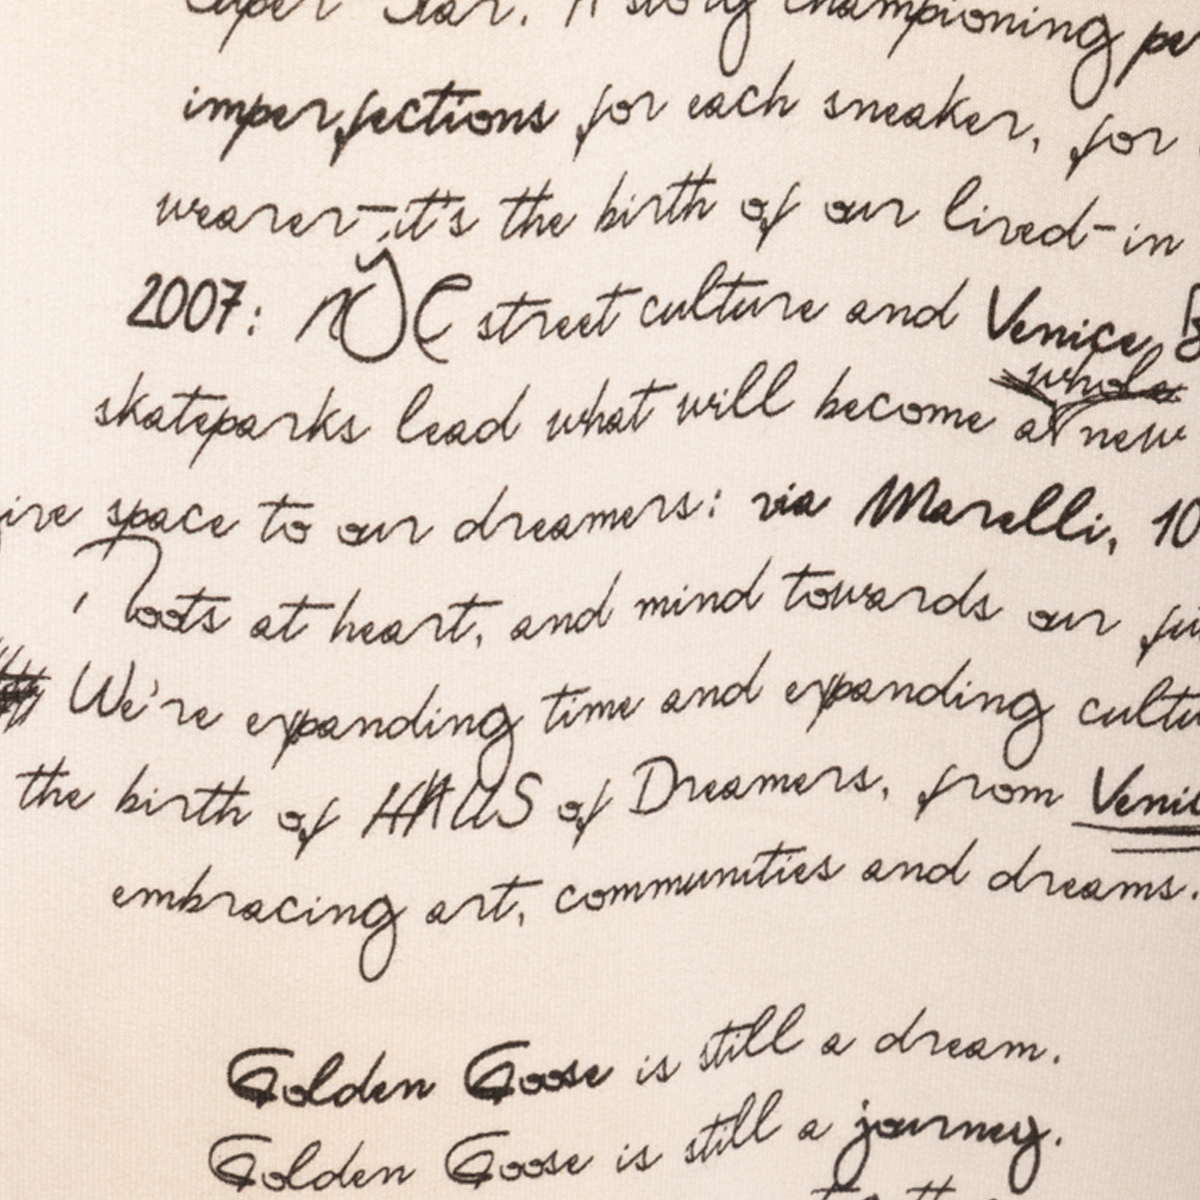 Super Star. A story championing
imperfections for each sneaker, for
wearer-it's the birth of our lived-in
2007: NYC street culture and Venice
skateparks lead what will become a whole new
space to our dreamers: via Marelli, 10
Roots at heart, and mind towards our
We're expanding time and expanding
the birth of HAUS of Dreamers, from
embracing art, communities and dreams.
Golden Goose is still a dream.
Golden Goose is still a journey.